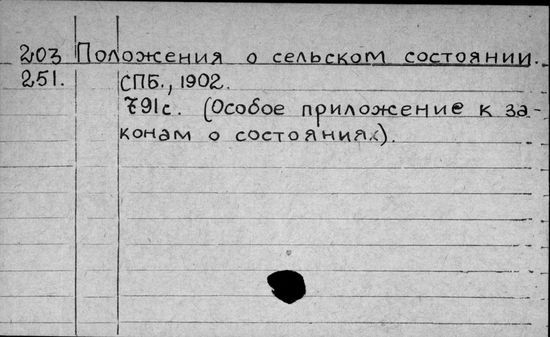 203 Положения о сельском состоянии.
251. СПБ., 1902.
791с. (Особое приложение к за-
конам о состояниях).